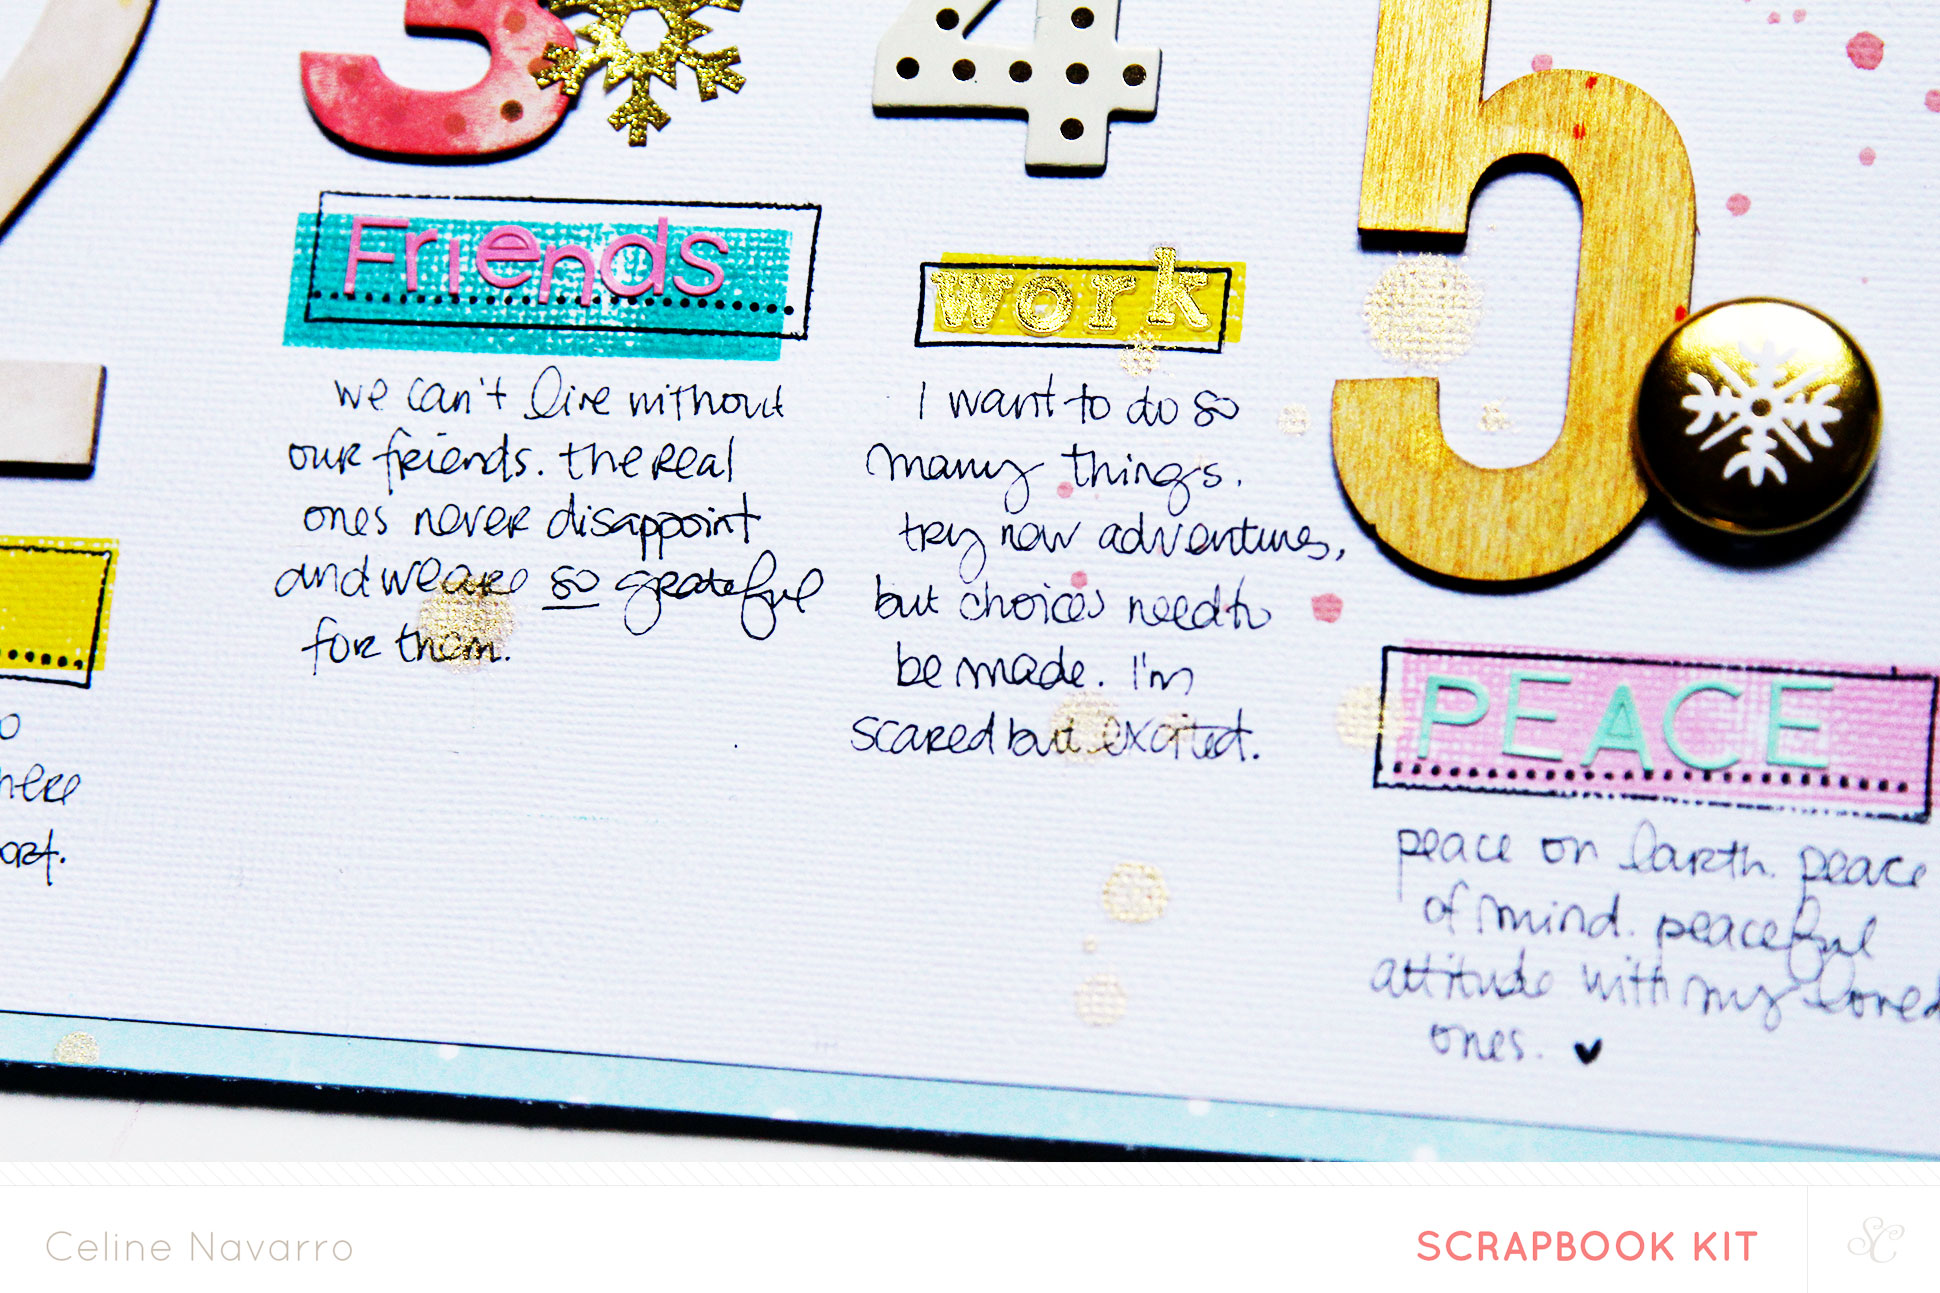 2
3
4
5
Friends
we can't live without
our friends. the real
ones never disappoint
and we are so grateful
for them.
work
I want to do so
many things.
try new adventures,
but choices need to
be made. I'm
scared but excited.
PEACE
peace on earth. peace
of mind. peaceful
attitude with my loved
ones. ♥
Celine Navarro
SCRAPBOOK KIT
SC